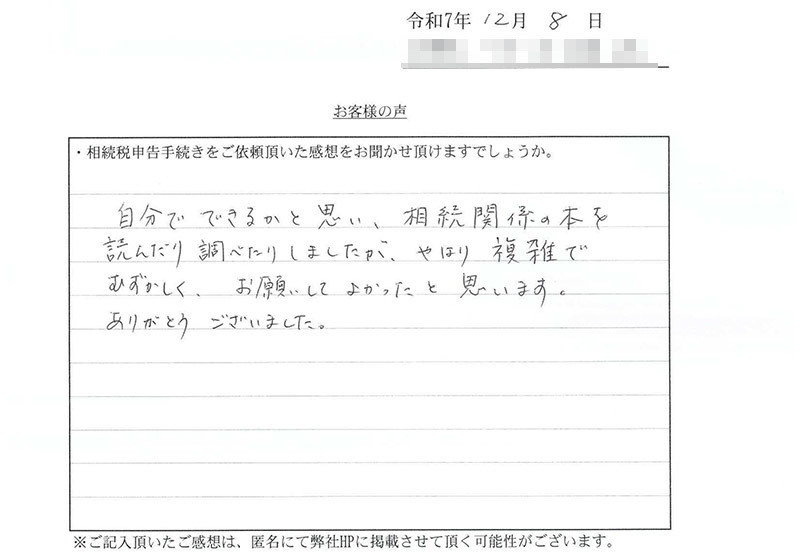 令和7年 12月 8 日
お客様の声
・相続税申告手続きをご依頼頂いた感想をお聞かせ頂けますでしょうか。
自分でできるかと思い、相続関係の本を
読んだり調べたりしましたが、やはり複雑で
むずかしく、お願いしてよかったと思います。
ありがとうございました。
※ご記入頂いたご感想は、匿名にて弊社HPに掲載させて頂く可能性がございます。